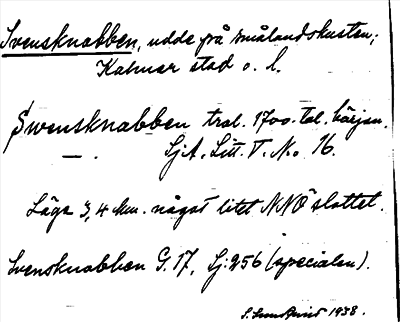 Svensknabben, udde på smålandskusten;
Kalmar stad o. l.
Swensknabben trol. 1700-tal. början.
SjA. Litt. T. No 16.
Läge 3,4 km. något litet NNO slottet.
Svensknabben G. 17, Sj: 256 (specialen).
1938.